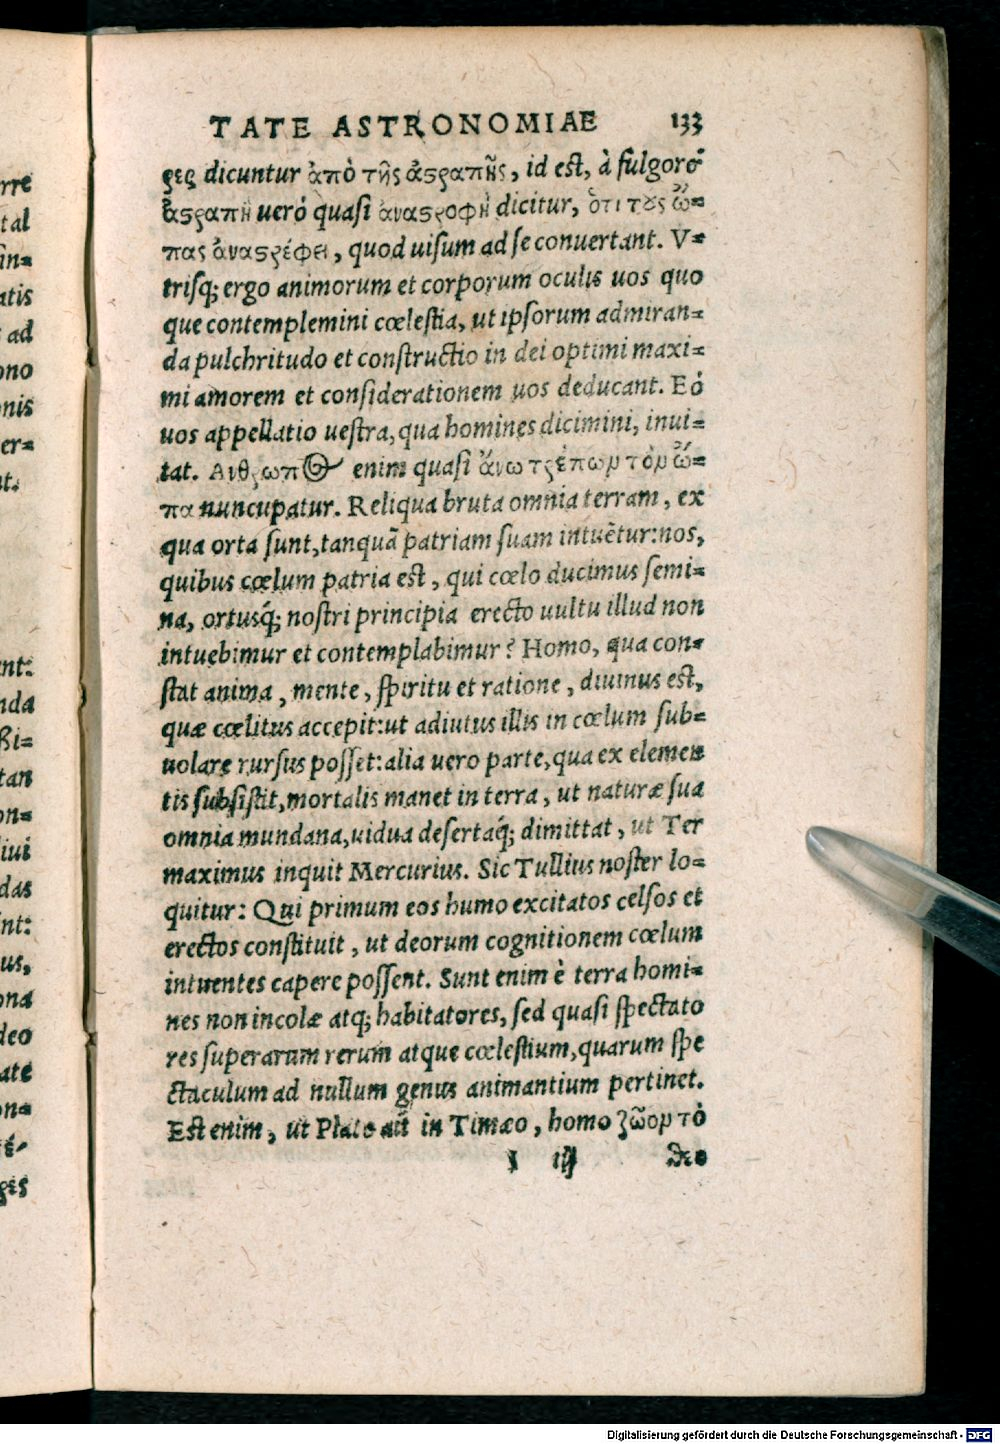 TATE ASTRONOMIAE 133
ϱες dicuntur ἀπὸ τῆς ἀϛραπῆς, id est, à fulgore
ἀϛραπὴ ueró quasi ἀναϛροφὴ dicitur, ὅτι τοὺς ὦ=
πας ἀναϛρέφει, quod uisum ad se conuertant. V=
trisq; ergo animorum et corporum oculis uos quo
que contemplemini cœlestia, ut ipsorum admiran=
da pulchritudo et constructio in dei optimi maxi=
mi amorem et considerationem uos deducant. Eó
uos appellatio uestra, qua homines dicimini, inui=
tat. Ανθρωπος enim quasi ἄνω τρέπων τὸν ὦ=
πα nuncupatur. Reliqua bruta omnia terram, ex
qua orta sunt, tanquã patriam suam intuẽtur: nos,
quibus cœlum patria est, qui cœlo ducimus semi=
na, ortusq́; nostri principia erecto uultu illud non
intuebimur et contemplabimur? Homo, qua con=
stat anima, mente, spiritu et ratione, diuinus est,
quæ cœlitus accepit: ut adiutus illis in cœlum sub=
uolare rursus posset: alia uero parte, qua ex elemen
tis subsistit, mortalis manet in terra, ut naturæ sua
omnia mundana, uidua desertaq́; dimittat, ut Ter
maximus inquit Mercurius. Sic Tullius noster lo=
quitur: Qui primum eos humo excitatos celsos et
erectos constituit, ut deorum cognitionem cœlum
intuentes capere possent. Sunt enim è terra homi=
nes non incolæ atq; habitatores, sed quasi spectato
res superarum rerum atque cœlestium, quarum spe
ctaculum ad nullum genus animantium pertinet.
Est enim, ut Plato ait in Timæo, homo ζῶον τὸ
I iiij
rre
tal
in=
atis
ad
ono
onis
er=
nt:
nda
ßi=
tan
on=
iui
das
nt:
us,
ona
deo
ate
on=
Digitalisierung gefördert durch die Deutsche Forschungsgemeinschaft - DFG